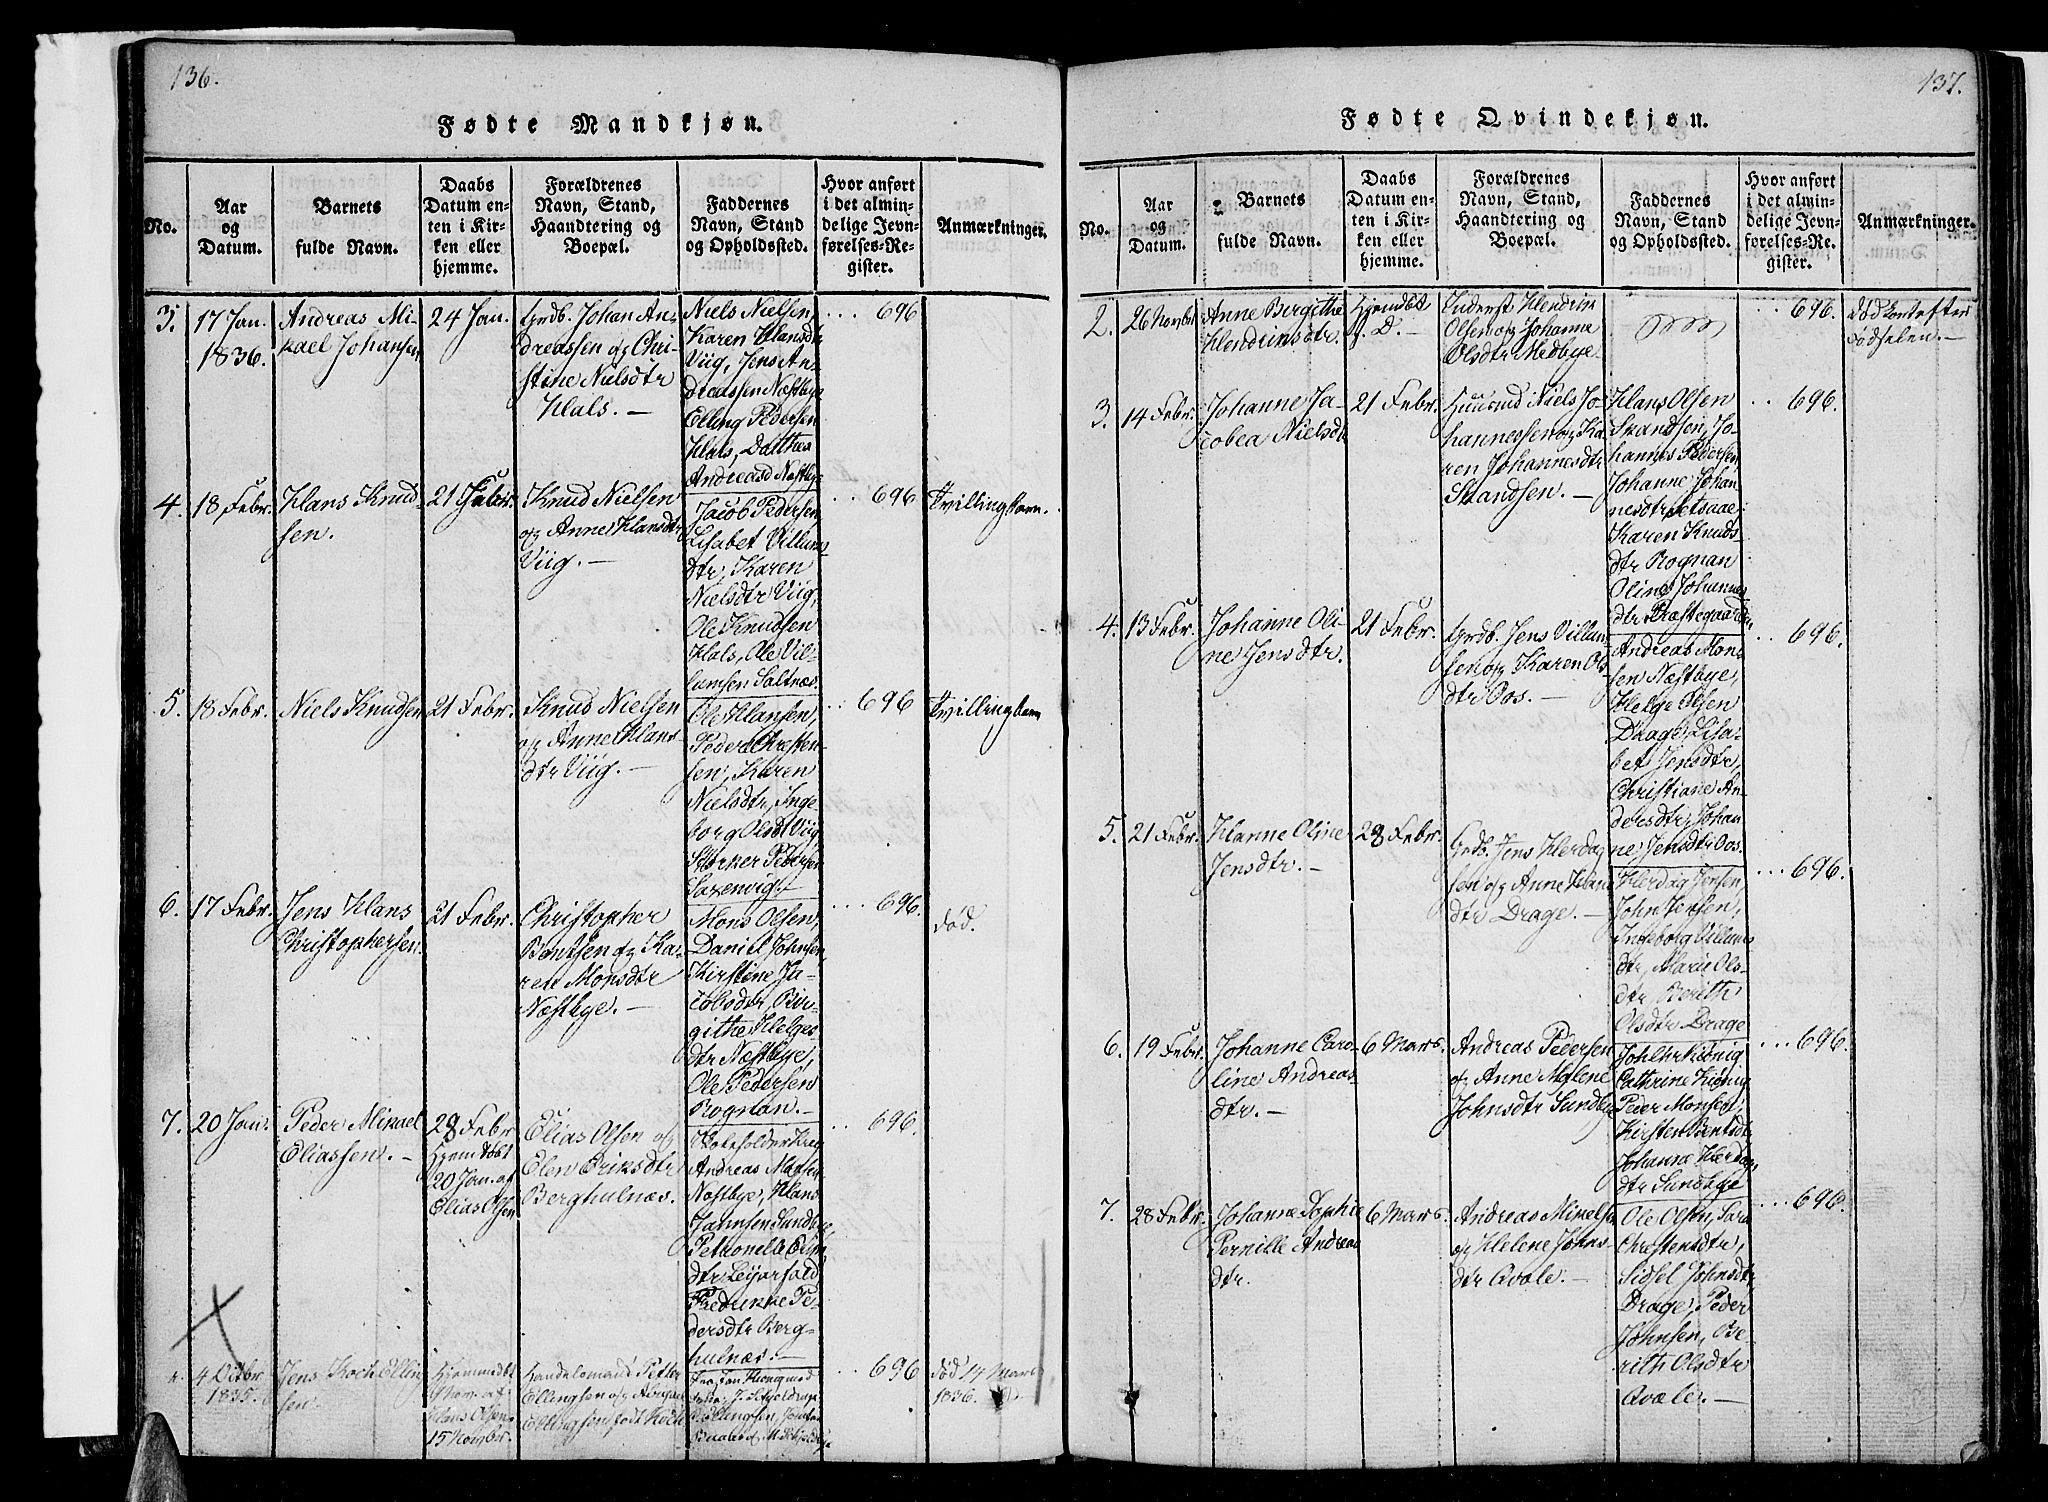 136.
Fødte Mandkjøn.
No.
Aar
og
Datum.
Barnets
fulde Navn.
Daabs
Datum en-
ten i Kir-
ken eller
hjemme.
Forældrenes
Navn, Stand,
Haandtering og
Boepæl.
Faddernes
Navn, Stand
og Opholdssted.
Hvor anført
i det almin-
delige Jevn-
førelses-Re-
gister.
Anmærkninger.
3.
17 Jan.
1836.
Andreas Mi-
kael Johansen
24 Jan.
Grdb. Johan An-
dreassen og Chri-
stine Nielsdtr
Hals. -
Niels Nielsen,
Karen Hansdtr
Viig, Jens An-
dreassen Næstbye
Elling Pedersen
Hals, Dorthea
Andreasd Næstbye
696
4.
18 Febr.
Hans Knud-
sen.
21 Febr.
Knud Nielsen
og Anne Hansdtr
Viig. -
Jacob Pedersen,
Lisabet Villums-
dtr, Karen
Nielsdtr Viig,
Ole Knudsen
Hals, Ole Vil-
lumsen Saltnæs.
696
Tvillingbarn.
5.
18 Febr.
Niels Knudsen
21 Febr.
Knud Nielsen
og Anne Hans
dtr Viig. -
Ole Hansen,
Peder Christen-
sen, Karen
Nielsdtr, Inge-
borg Olsdt Viig
Storker Pedersen
Saxenvig. -
696
Tvillingbarn
6.
17 Febr.
Jens Hans
Christophersen.
21 Febr.
Christopher
Bentsen og Ka-
ren Monsdtr
Næstbye. -
Mons Olsen,
Daniel Johnsen,
Kirstine Ja-
cobsdtr, Bir-
githe Helges
dtr Næstbye,
Ole Pedersen
Rognan. -
696.
død.
7.
20 Jan.
Peder Mikael
Eliassen. -
28 Febr
Hjemdøbt
20 Jan. af
Elias Olsen
Elias Olsen og
Elen Eriksdtr
Berghulnæs.
Andreas
Næstbye, Hans
Petronelle
dtr
Fredrikke Pe-
dersdtr Berg-
hulnæs. -
696.
4 Octbr
1835.
Jens Koch Elling
sen.
Hjemmedøbt
af
Hans Olsen
15 Novbr.
Handelsmand Petter
Ellingsen og
Ellingsen født Koch
696
død 14 Marts
1836.
137.
Fødte Qvindekjøn.
No.
Aar
og
Datum.
Barnets
fulde Navn.
Daabs
Datum en-
ten i Kir-
ken eller
hjemme.
Forældrenes
Navn, Stand,
Haandtering og
Boepæl.
Faddernes
Navn, Stand
og Opholdssted.
Hvor anført
i det almin-
delige Jevn-
førelses-Re-
gister.
Anmærkninger.
2.
26 Novbr
Anne Bergithe
Hendrinsdtr.
Hjemdøbt
s. D. -
Hendrin
Olsen og Johanne
Olsdtr Medbye.
696.
Død kort efter
Fødselen. -
3.
14 Febr.
Johanne Ja-
cobea Nielsdt
21 Febr.
Huusmd Niels Jo-
hannessen og Ka-
ren Johannesdtr
Strandsen. -
Hans Olsen
Strandsen, Jo-
hannes Pedersen
Johanne Johan
nesdtr
Karen Knuds-
dtr Rognan
Oline Johannes
dtr Præstegaarden
696.
4.
13 Febr.
Johanne Oli-
ne Jensdtr.
21 Febr.
Grdb. Jens Villum
sen og Karen Ols
dtr Oos. -
Andreas Mons
sen Næstbye,
Helge Olsen
Drage, Lisa-
bet Jensdtr,
Christiane An-
dersdtr, Johan
ne Jensdtr Oos.
696.
5.
21 Febr.
Hanne Oline
Jensdtr. -
28 Febr.
Grdb. Jens Herdag
sen og Anne Hans
dtr Drage. -
Herdag Jensen,
John Jensen,
Ingeborg Villums
dtr, Marie Ols-
dtr, Berith
Olsdtr Drage
696.
6.
19 Febr.
Johanne Caro-
line Andreas
dtr. -
6 Mars.
Andreas Pedersen
og Anne Malene
Johnsdtr Sundbye
Cathrine
Peder Monsen,
Kirsten Bentsdt
Johanne Herdags
dtr Sundbye
696.
7.
28 Febr.
Johanne Sophie
Pernille Andreas
dtr.
6 Mars.
Andreas Mikelsen
og Helene Johns-
dtr Qvale. -
Ole Olsen, Sara
Christensdtr,
Sidsel Johnsdtr
Drage, Peder
Johnsen, Be-
rith Olsdtr
Qvale. -
696.